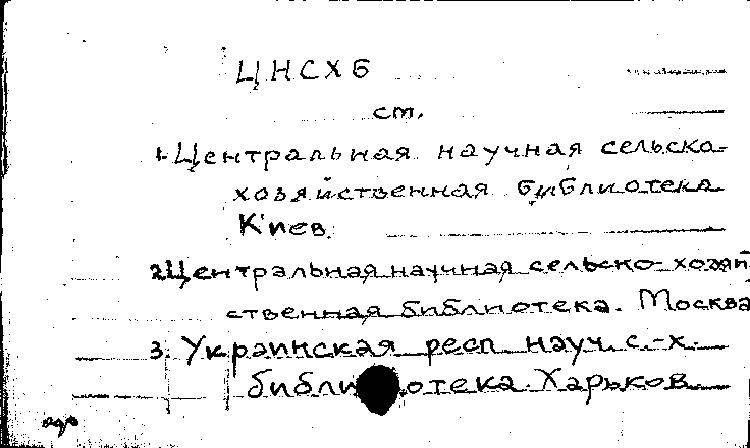 ЦНСХБ
ст.
1. Центральная научная сельско-
хозяйственная библиотека
Киев.
2. Центральная научная сельско-хозяй
ственная библиотека. Москва
3. Украинская респ науч. с.-х.
библиотека. Харьков.